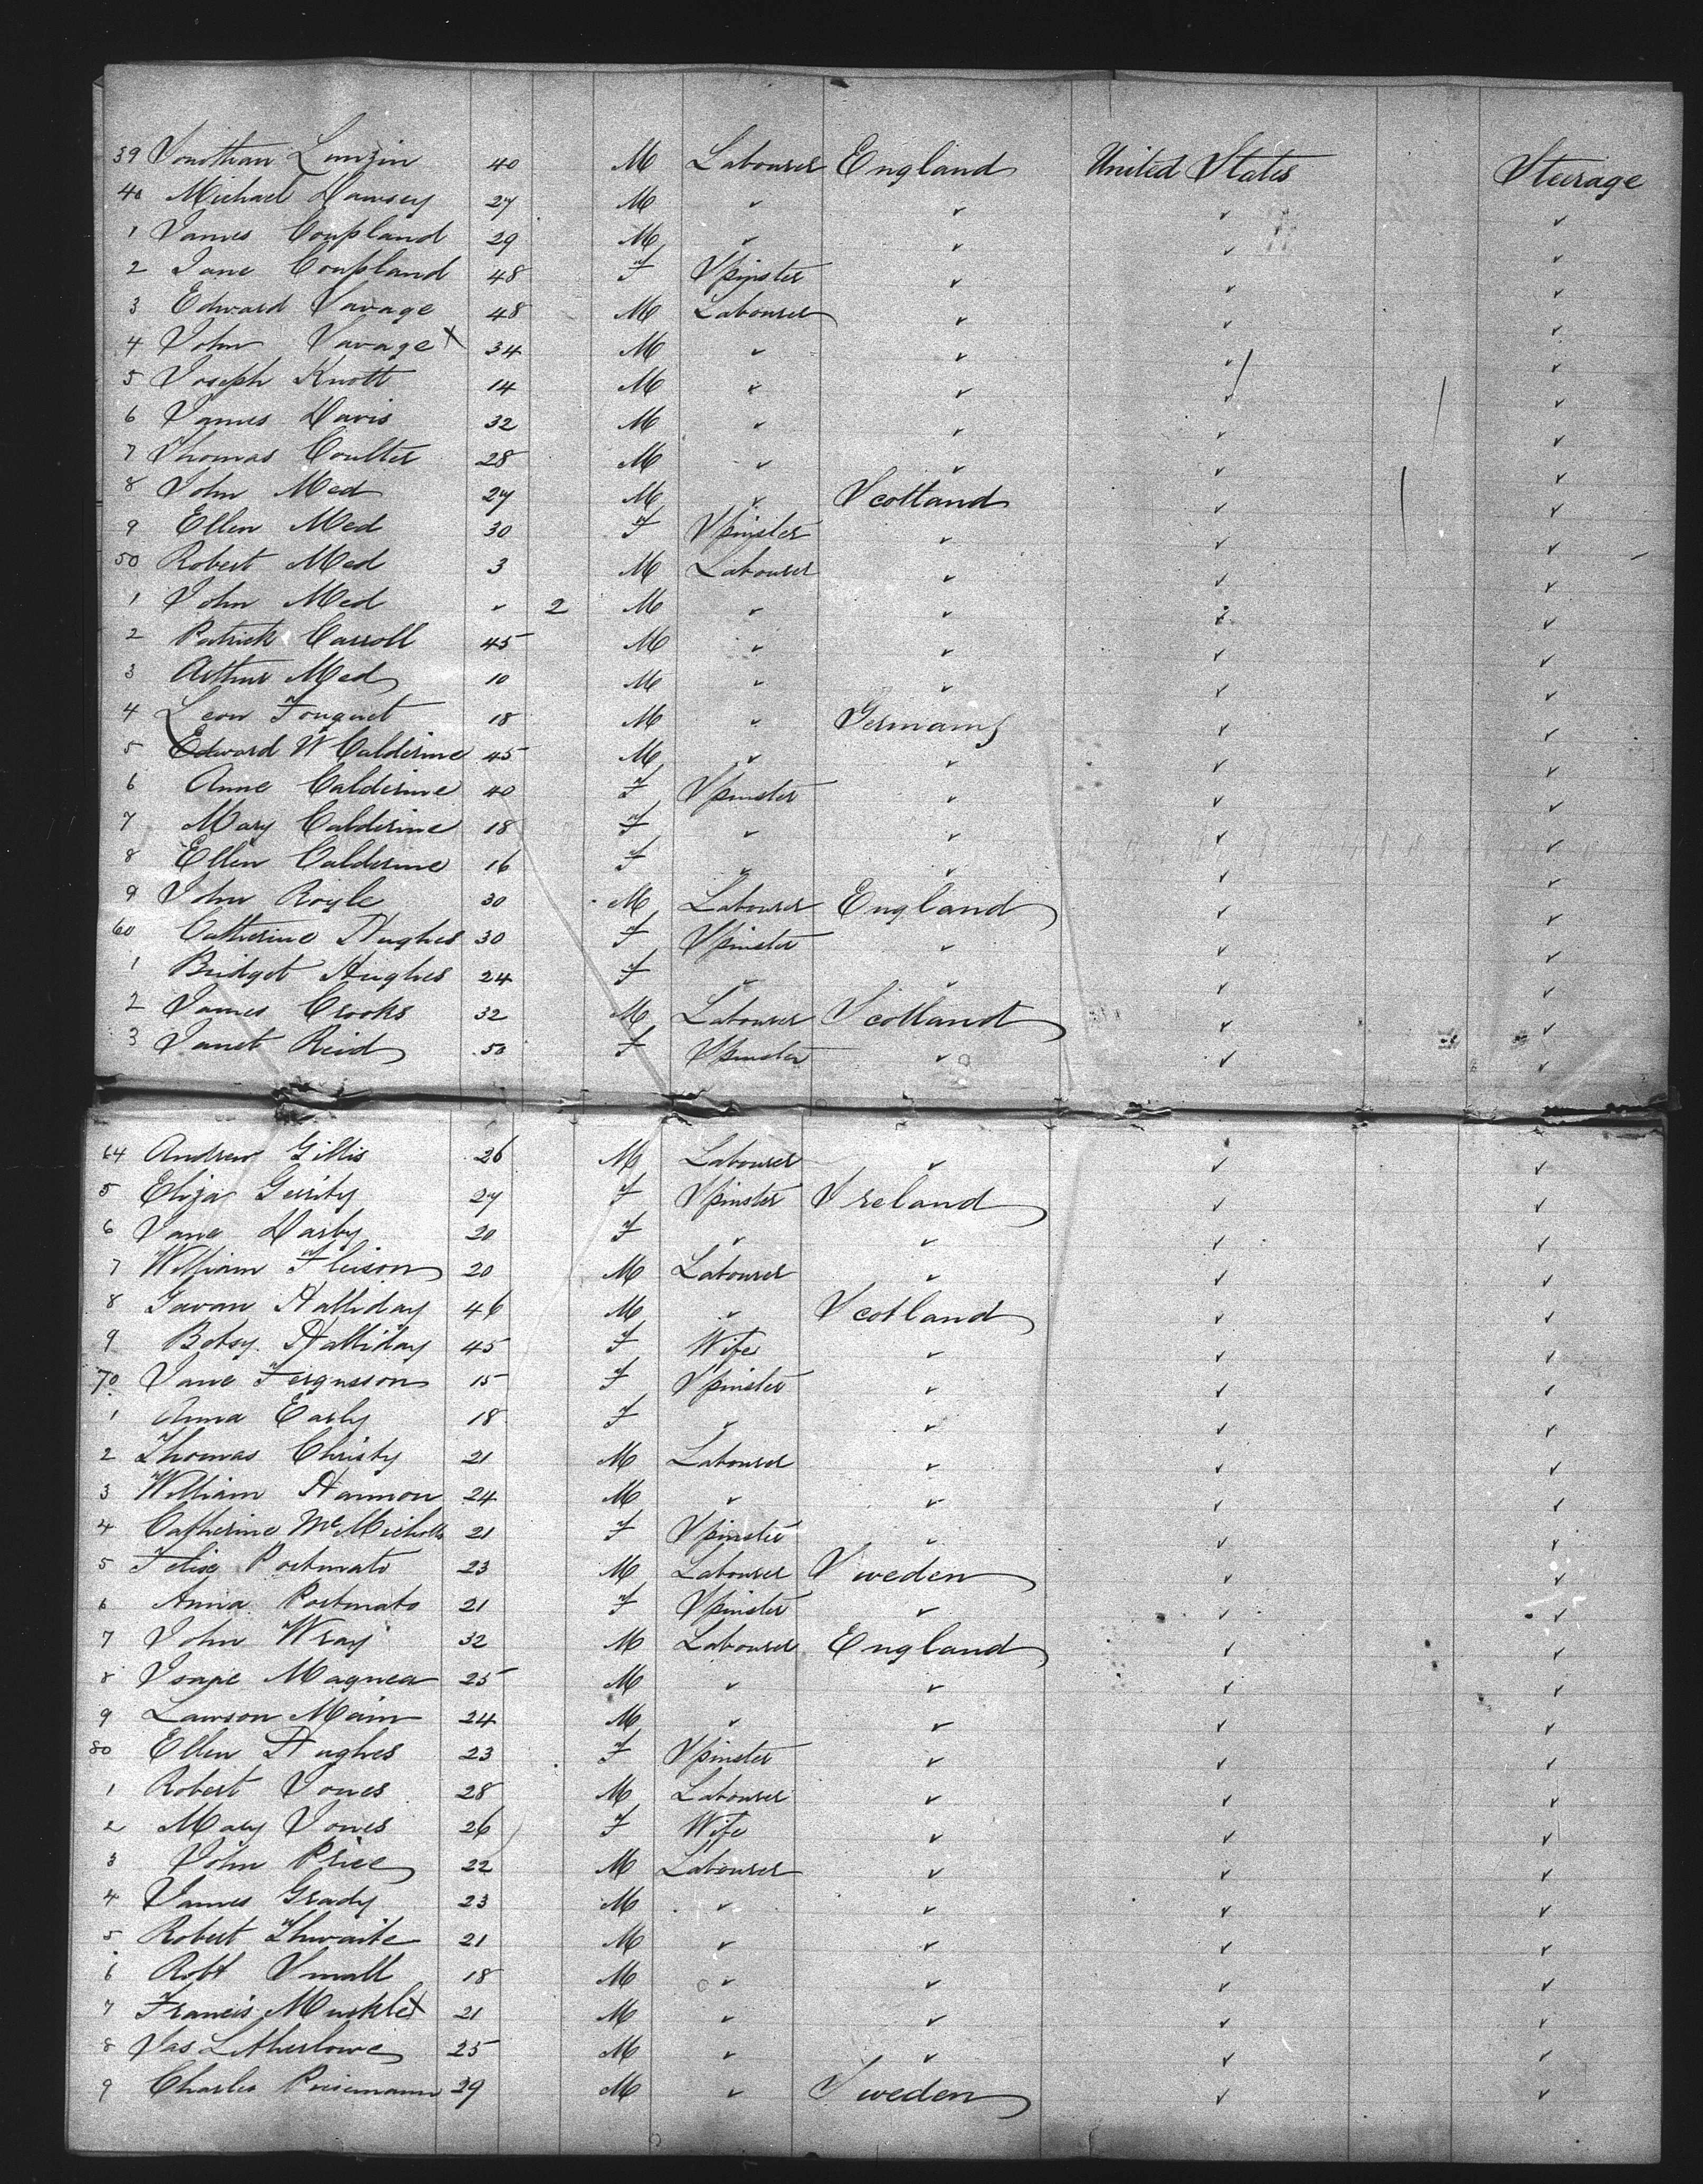 39 Jonathan Lunzin 40 M Labourer England United States Steerage
40 Michael Dawsey 27 M ✓ ✓ ✓ ✓
1 James Coupland 29 M ✓ ✓ ✓ ✓
2 Jane Coupland 48 F Spinster ✓ ✓ ✓
3 Edward Savage 48 M Labourer ✓ ✓ ✓
4 John Savage X 34 M ✓ ✓ ✓ ✓
5 Joseph Knott 14 M ✓ ✓ ✓ ✓
6 James Davis 32 M ✓ ✓ ✓ ✓
7 Thomas Coulter 28 M ✓ ✓ ✓ ✓
8 John Med 27 M ✓ Scotland ✓ ✓
9 Ellen Med 30 F Spinster ✓ ✓ ✓
50 Robert Med 3 M Labourer ✓ ✓ ✓
1 John Med ✓ 2 M ✓ ✓ ✓ ✓
2 Patrick Carroll 45 M ✓ ✓ ✓ ✓
3 Arthur Med 10 M ✓ ✓ ✓ ✓
4 Leon Fouquet 18 M ✓ Germany ✓ ✓
5 Edward W Calderine 45 M ✓ ✓ ✓ ✓
6 Anne Calderine 40 F Spinster ✓ ✓ ✓
7 Mary Calderine 18 F ✓ ✓ ✓ ✓
8 Ellen Calderine 16 F ✓ ✓ ✓ ✓
9 John Royle 30 M Labourer England ✓ ✓
60 Catherine Hughes 30 F Spinster ✓ ✓ ✓
1 Bridget Hughes 24 F ✓ ✓ ✓ ✓
2 James Crooks 32 M Labourer Scotland ✓ ✓
3 Janet Reid 50 F Spinster ✓ ✓ ✓
64 Andrew Gillis 26 M Labourer ✓ ✓ ✓
5 Eliza Gerrity 27 F Spinster Ireland ✓ ✓
6 Jane Darby 20 F ✓ ✓ ✓ ✓
7 William Fleison 20 M Labourer ✓ ✓ ✓
8 Gavan Halliday 46 M ✓ Scotland ✓ ✓
9 Betsy Halliday 45 F Wife ✓ ✓ ✓
70 Jane Fergusson 15 F Spinster ✓ ✓ ✓
1 Anna Early 18 F ✓ ✓ ✓ ✓
2 Thomas Christy 21 M Labourer ✓ ✓ ✓
3 William Hannon 24 M ✓ ✓ ✓ ✓
4 Catherine McMicholls 21 F Spinster ✓ ✓ ✓
5 Felise Portunato 23 M Labourer Sweden ✓ ✓
6 Anna Portunato 21 F Spinster ✓ ✓ ✓
7 John Wray 32 M Labourer England ✓ ✓
8 Magnea 25 M ✓ ✓ ✓ ✓
9 Lawson Main 24 M ✓ ✓ ✓ ✓
80 Ellen Hughes 23 F Spinster ✓ ✓ ✓
1 Robert Jones 28 M Labourer ✓ ✓ ✓
2 Mary Jones 26 F Wife ✓ ✓ ✓
3 John Price 22 M Labourer ✓ ✓ ✓
4 James Grady 23 M ✓ ✓ ✓ ✓
5 Robert Thwaite 21 M ✓ ✓ ✓ ✓
6 Robt Small 18 M ✓ ✓ ✓ ✓
7 Francis Muckle X 21 M ✓ ✓ ✓ ✓
8 Jas Litherlowe 25 M ✓ ✓ ✓ ✓
9 Charles Preisemann 29 M ✓ Sweden ✓ ✓